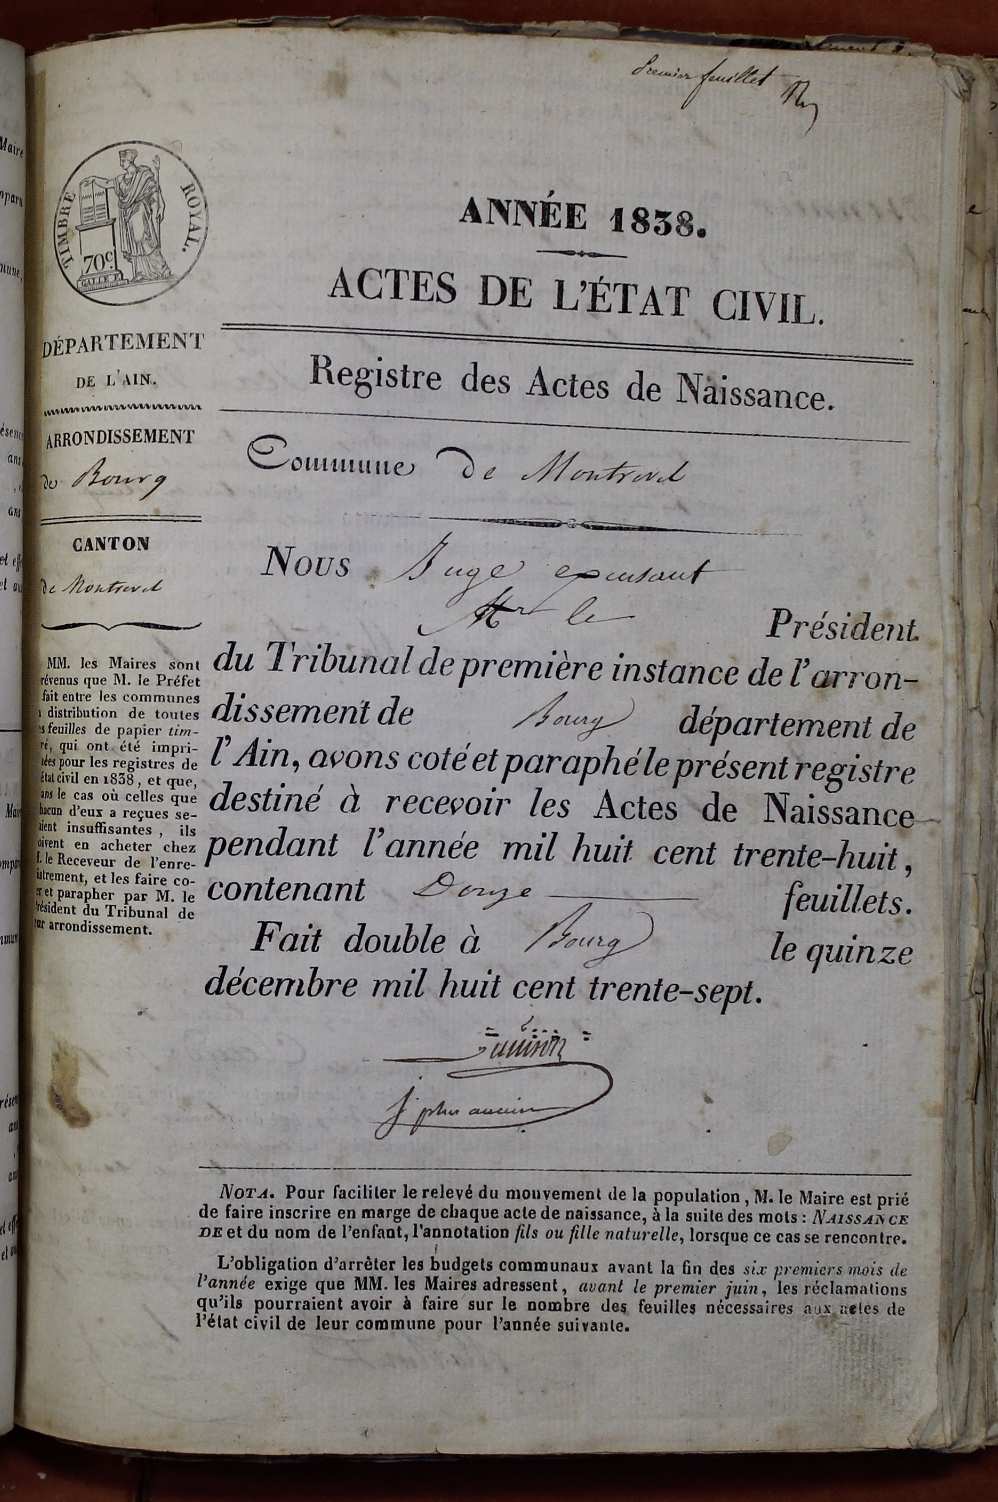 Premier feuillet
TIMBRE ROYAL.
70c
ANNÉE 1838.
ACTES DE L'ÉTAT CIVIL.
Registre des Actes de Naissance.
Commune de Montrevel
DÉPARTEMENT
DE L'AIN.
ARRONDISSEMENT
de Bourg
CANTON
de Montrevel
MM. les Maires sont
révenus que M. le Préfet
fait entre les communes
distribution de toutes
feuilles de papier tim-
ré, qui ont été impri-
ées pour les registres de
état civil en 1838, et que,
ans le cas où celles que
hacun d'eux a reçues se-
aient insuffisantes, ils
oivent en acheter chez
le Receveur de l'enre-
istrement, et les faire co-
er et parapher par M. le
résident du Tribunal de
arrondissement.
NOUS Juge
Mr le Président
du Tribunal de première instance de l'arron-
dissement de Bourg département de
l'Ain, avons coté et paraphé le présent registre
destiné à recevoir les Actes de Naissance
pendant l'année mil huit cent trente-huit,
contenant Douze feuillets.
Fait double à Bourg le quinze
décembre mil huit cent trente-sept.
plus ancien
NOTA. Pour faciliter le relevé du mouvement de la population, M. le Maire est prié
de faire inscrire en marge de chaque acte de naissance, à la suite des mots : NAISSANCE
DE et du nom de l'enfant, l'annotation fils ou fille naturelle, lorsque ce cas se rencontre.
L'obligation d'arrêter les budgets communaux avant la fin des six premiers mois de
l'année exige que MM. les Maires adressent, avant le premier juin, les réclamations
qu'ils pourraient avoir à faire sur le nombre des feuilles nécessaires aux actes de
l'état civil de leur commune pour l'année suivante.